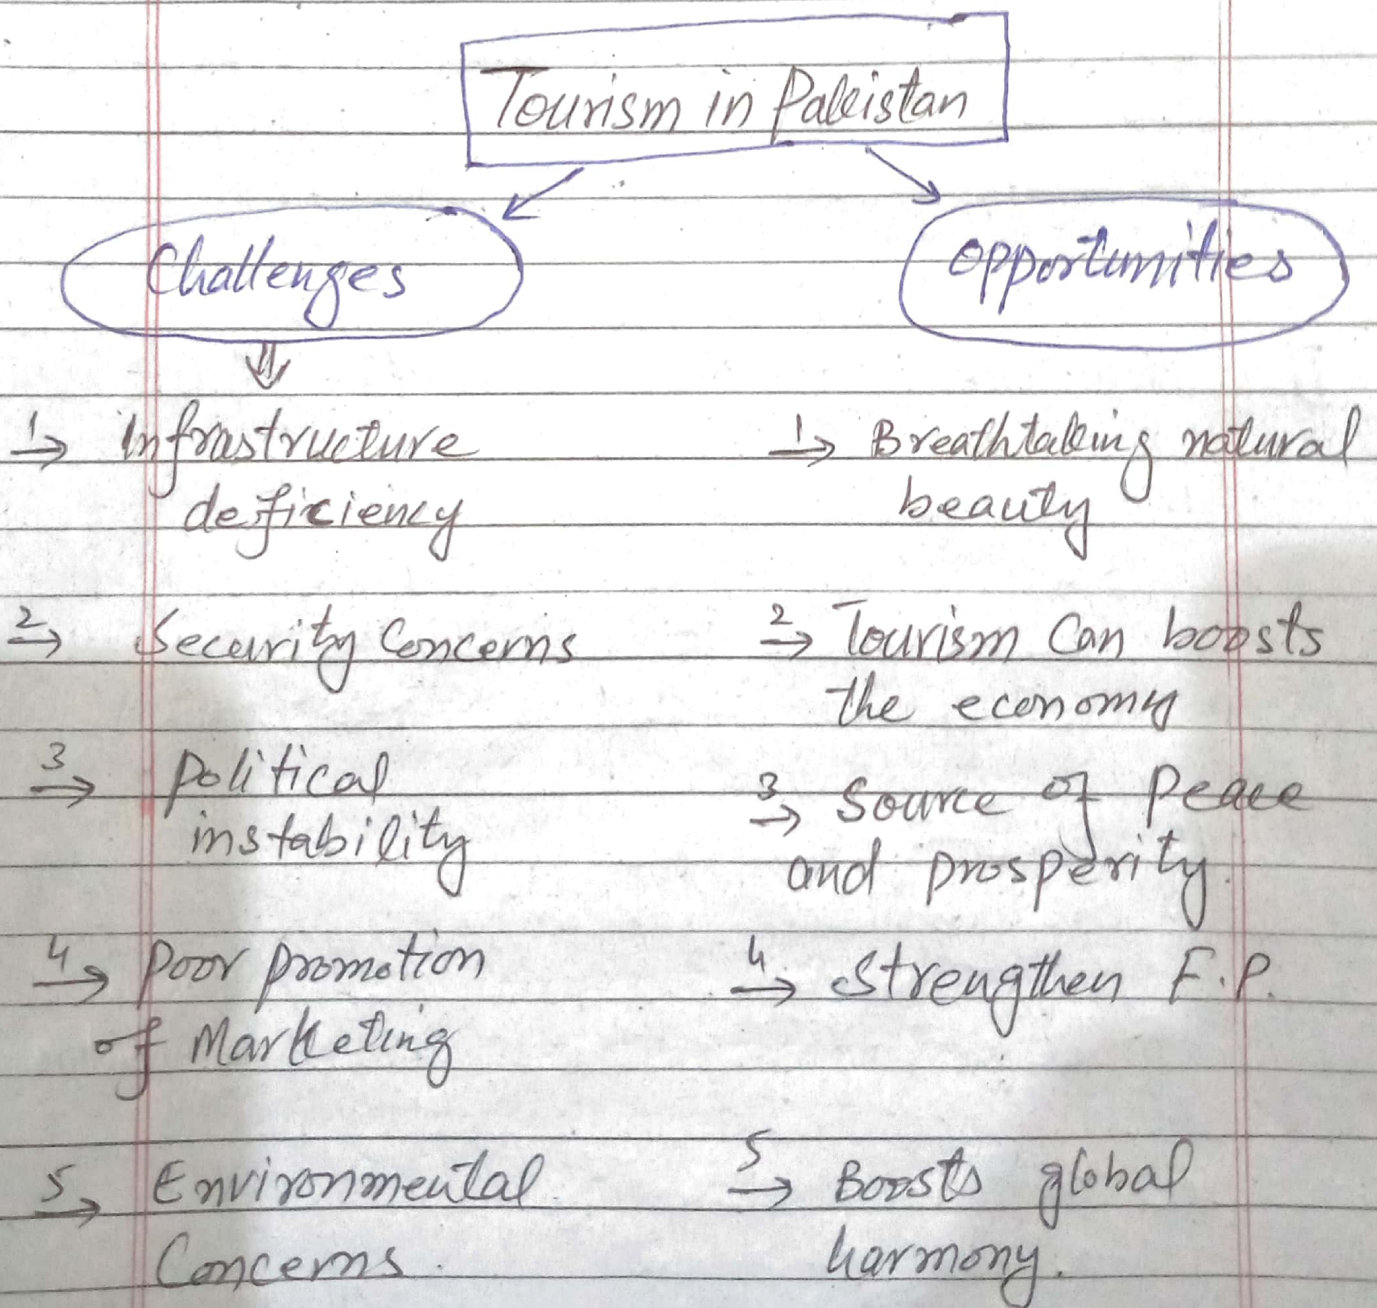 Tourism in Pakistan
Challenges
Opportunities
1→ Infrastructure
deficiency
2→ Security Concerns
3→ Political
instability
4→ Poor promotion
of Marketing
5→ Environmental
Concerns.
1→ Breathtaking natural
beauty
2→ Tourism Can boosts
the economy
3→ Source of Peace
and prosperity.
4→ Strengthen F.P.
5→ Boosts global
harmony.